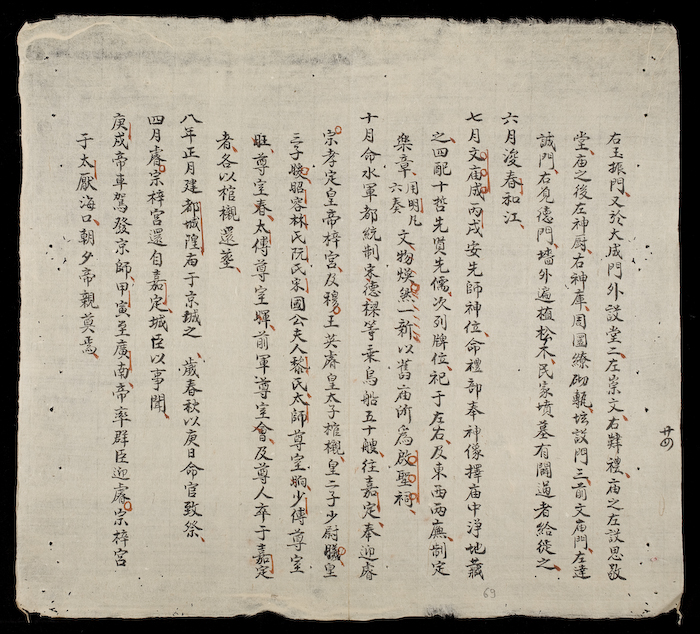 右玉振門又於大成門外設堂二左崇文右肄禮廟之左設思敬
堂廟之後左神厨右神庫周圍繚砌甎坛設門三前文廟門左達
誠門右覓德門墻外遍植松木民家墳墓有關過者給徙之
六月浚春和江
七月文庙成丙戌安先師神位命禮部奉神像擇庙中浄地藏
之四配十哲先賢先儒次列牌位祀于左右及東西兩廡制定
樂章用明凡六奏文物煥然一新以舊庙所爲啟聖祠
十月命水軍都統制宋德樑等乘烏船五十艘往嘉定奉迎睿
宗孝定皇帝梓宮及穆王英睿皇太子棺櫬皇二子少尉皇
三子晚昭容林氏阮氏宋國公夫人黎氏太師尊室晌少傅尊室
旺尊室春太傅尊室暉前軍尊室會及尊人卒于嘉定
者各以棺櫬還塟
八年正月建都城隍庙于京城之歲春秋以庚日命官致祭
四月睿宗梓宮還自嘉定城臣以事聞
庚戌帝車駕發京師甲寅至廣南帝率群臣迎睿宗梓宮
于太厭海口朝夕帝親奠焉
廿四
69